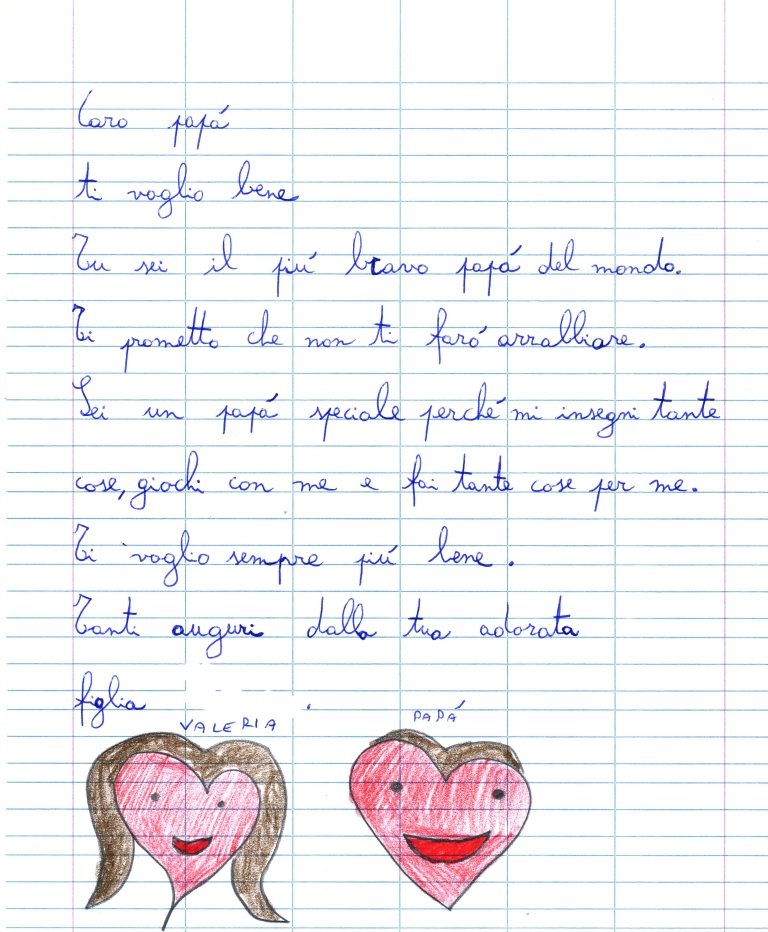 Caro papá
ti voglio bene
Tu sei il piú bravo papá del mondo.
Ti prometto che non ti faró arrabbiare.
Sei un papá speciale perché mi insegni tante
cose, giochi con me e fai tante cose per me.
Ti voglio sempre piú bene.
Tanti auguri dalla tua adorata
figlia .
VALERIA PAPÁ